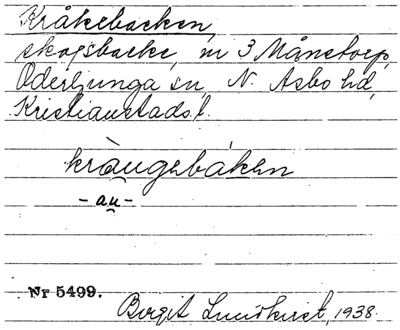 Kråkebacken,
skogsbacke, nr 3 Månstorp,
Oderljunga sn, N. Asbo hd,
Kristianstads l.
kràugebáken
-au-
Nr 5499.
Birgit Lundkvist, 1938.